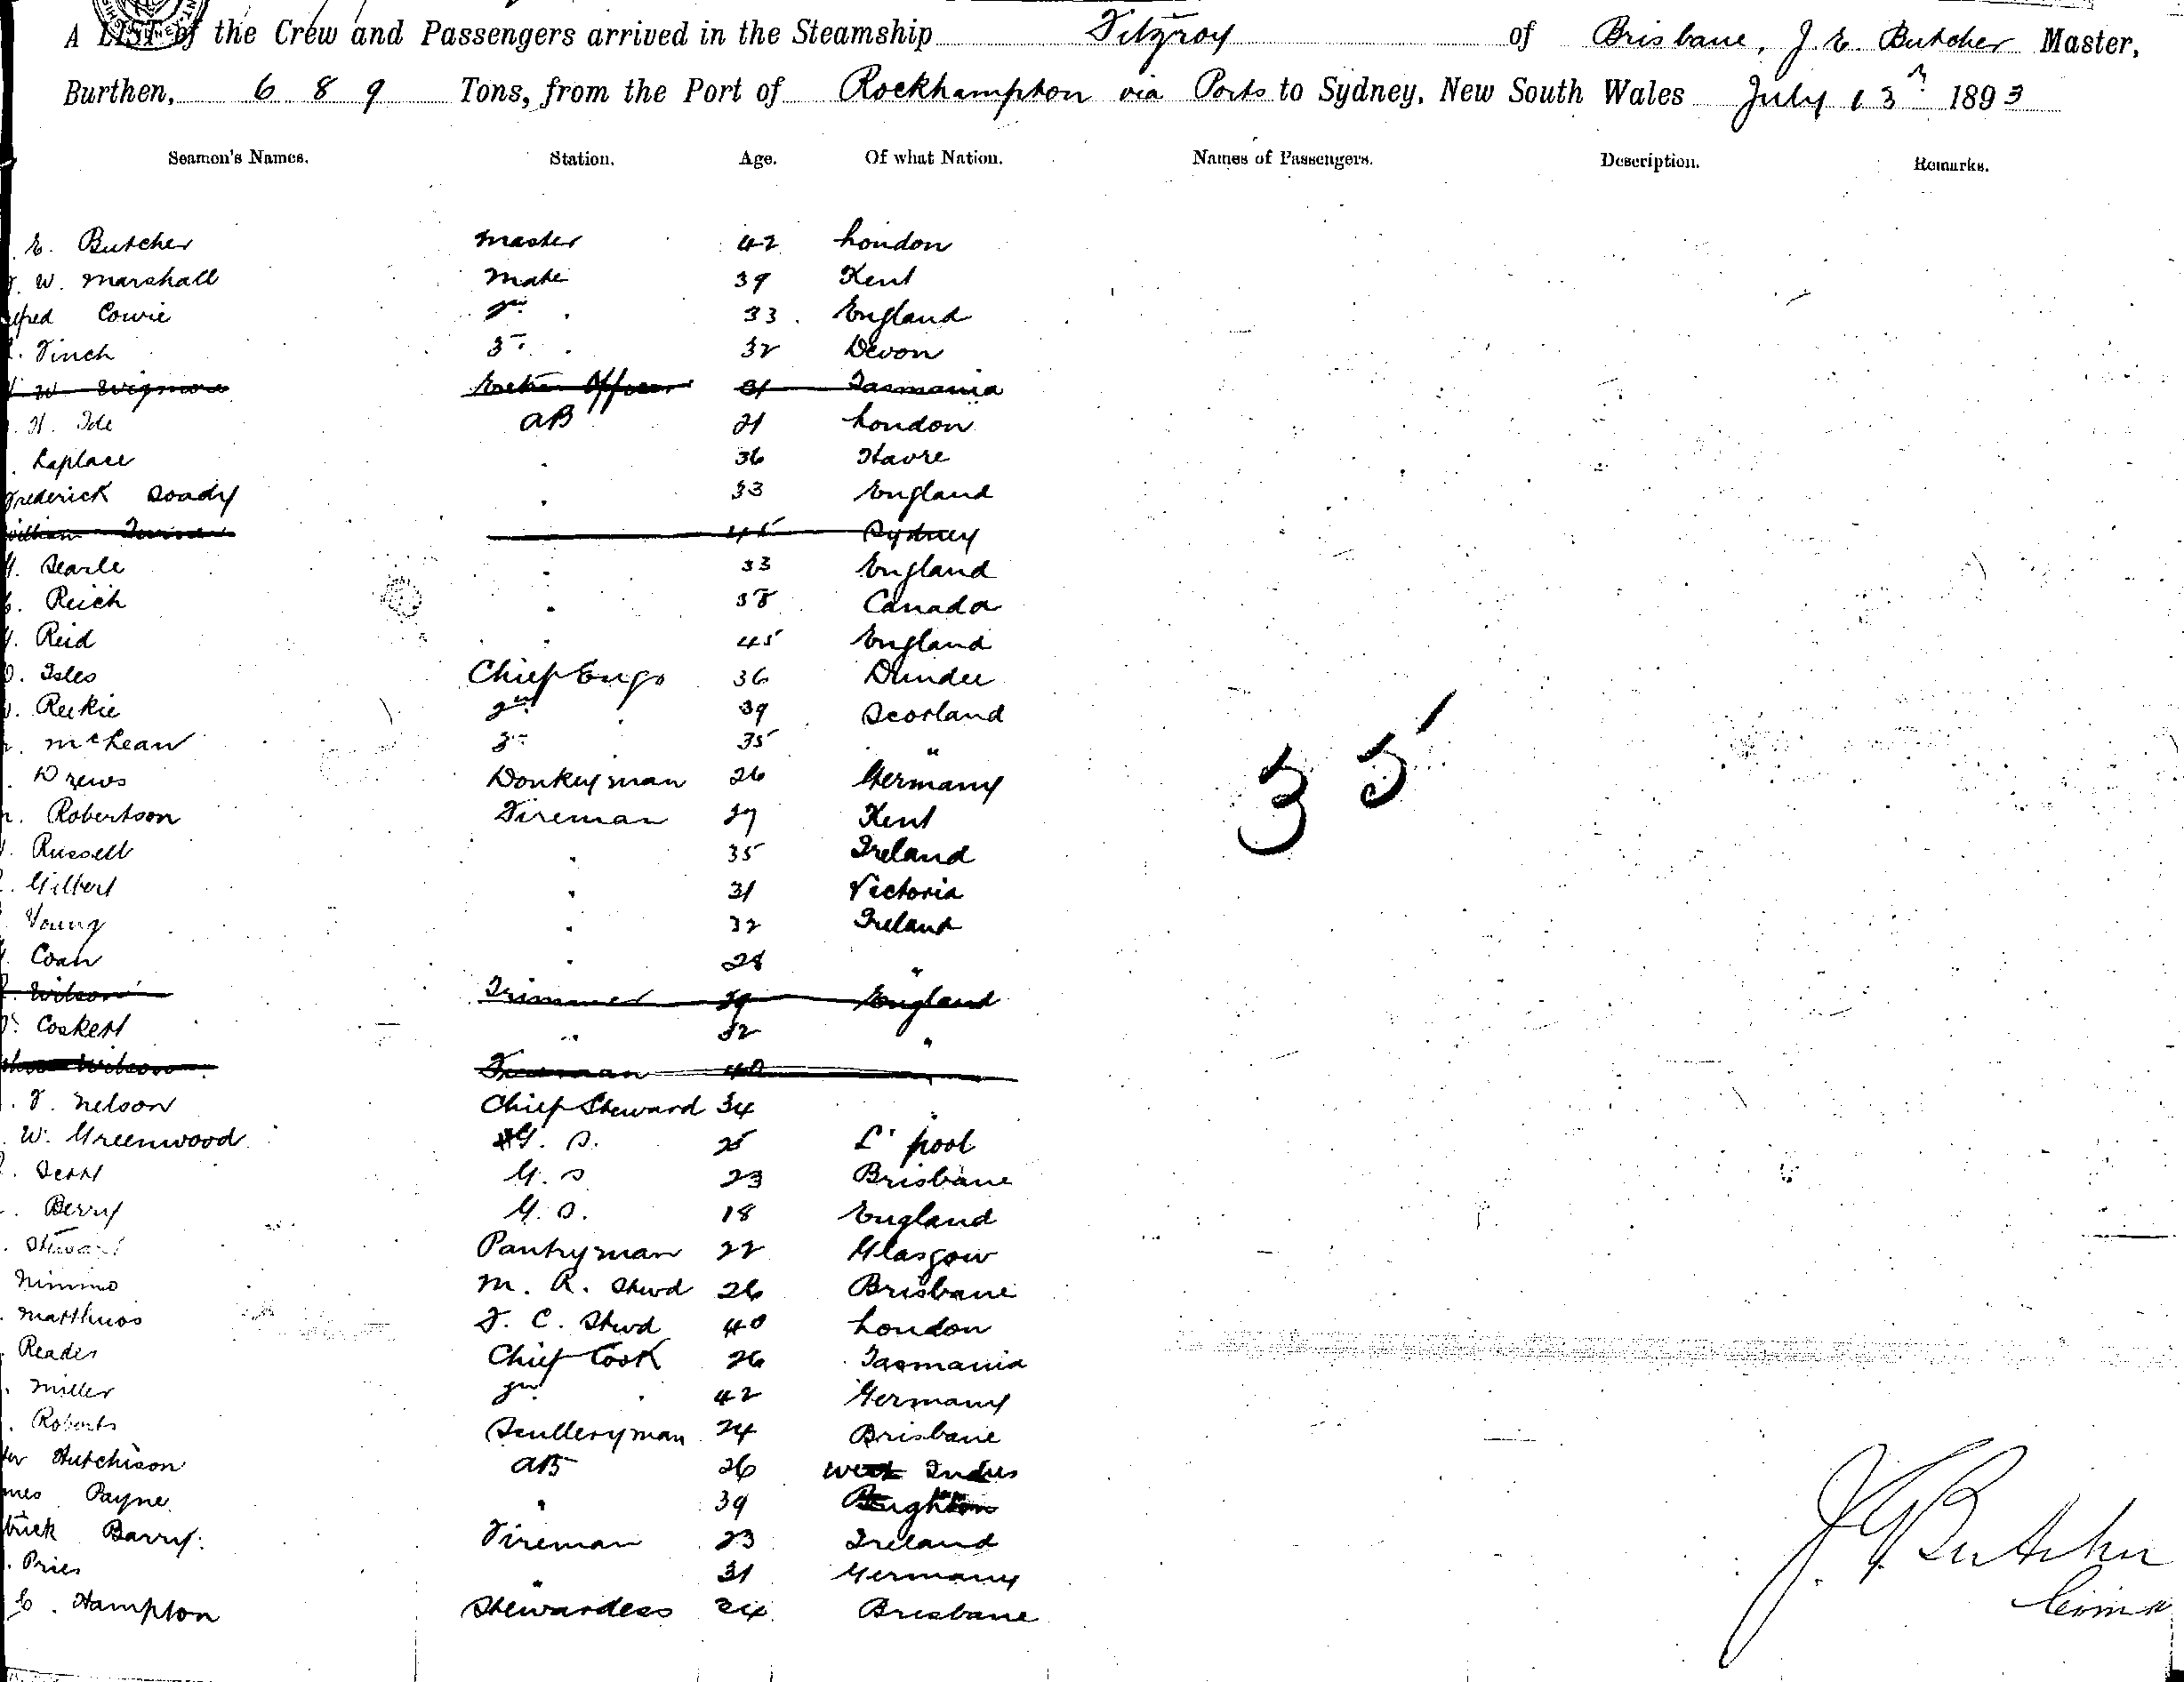 A LIST of the Crew and Passengers arrived in the Steamship Fitzroy of Brisbane, J. E. Butcher Master,
Burthen, 689 Tons, from the Port of Rockhampton via Ports to Sydney, New South Wales July 13th 1893
Seamen's Names. Station. Age. Of what Nation. Names of Passengers. Description. Remarks.
E. Butcher Master 42 London
W. Marshall Mate 39 Kent
Cowie 2nd . 33 England
Finch 3rd . 32 Devon
W Wigmore Extra Officer 21 Tasmania
H. Ide AB 21 London
Laplace . 36 Havre
Frederick Soady . 33 England
William Turner 45 Sydney
Searle . 33 England
Reich . 38 Canada
Reid . 45 England
Isles Chief Engr 36 Dundee
Reekie 2nd . 39 Scotland
McLean 3rd 35 "
Drews Donkeyman 26 Germany
Robertson Fireman 29 Kent
Russell . 35 Ireland
Gilbert . 31 Victoria
Young . 32 Ireland
Coan . 28 "
Wilson Trimmer 39 England
Coskett " 32 "
Wilson Fireman 40
F. Nelson Chief Steward 34 "
W. Greenwood G. S. 25 L'pool
Scott G. S 23 Brisbane
Berry G. S. 18 England
Stewart Pantryman 22 Glasgow
Nimmo M. R. Stwd 26 Brisbane
Matthews F. C. Stwd 40 London
Reader Chief Cook 26 Tasmania
Miller 2nd . 42 Germany
Roberts Sculleryman 24 Brisbane
Hutchison AB 26 West Indies
Payne . 39 Brighton
Barry. Fireman 23 Ireland
Pries " 31 Germany
E. Hampton Stewardess 24 Brisbane
35
J E Butcher